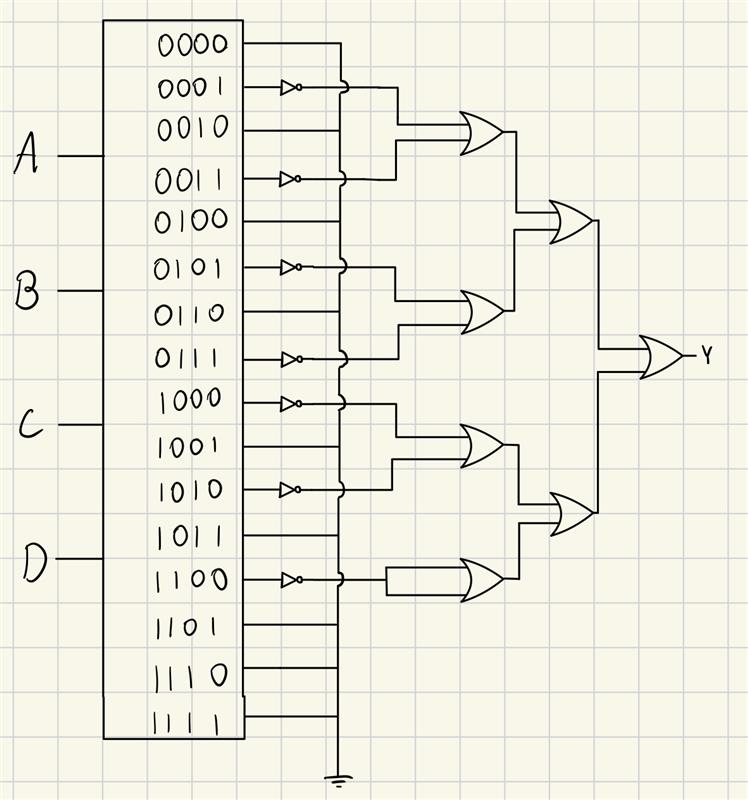 A
B
C
D
0000
0001
0010
0011
0100
0101
0110
0111
1000
1001
1010
1011
1100
1101
1110
1111
Y